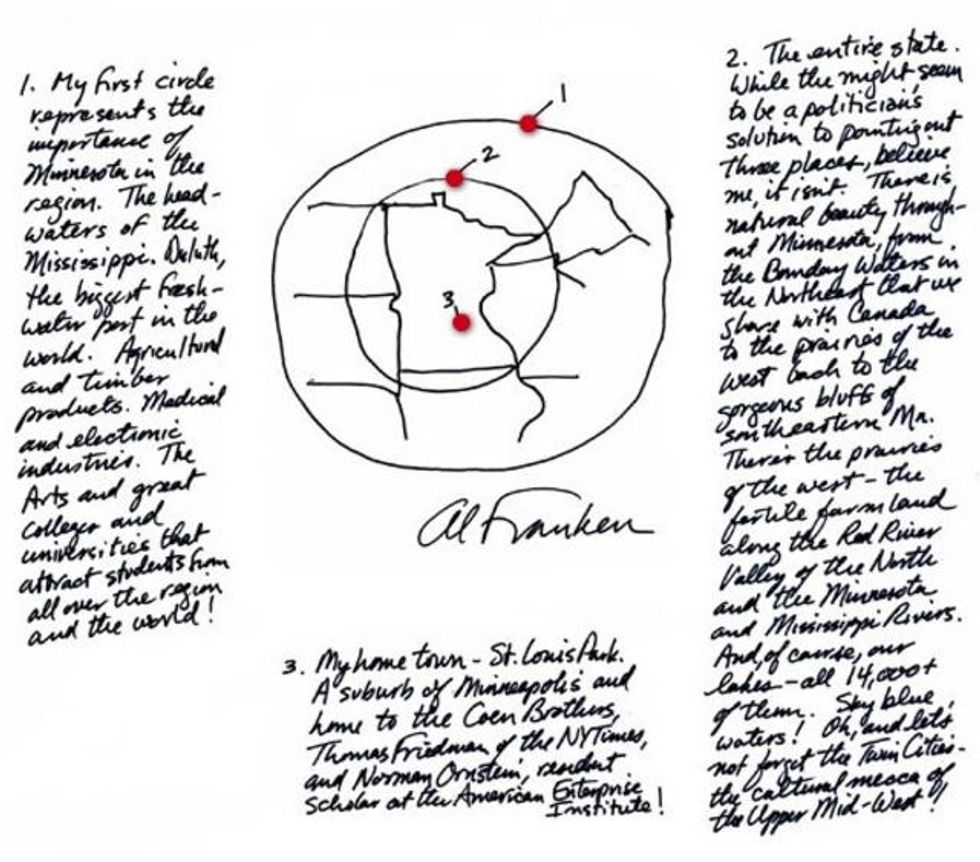 1. My first circle
represents the
importance of
Minnesota in the
region. The head-
waters of the
Mississippi. Duluth,
the biggest fresh-
water port in the
world. Agricultural
and timber
products. Medical
and electronic
industries. The
Arts and great
colleges and
universities that
attract students from
all over the region
and the world!
1
2
3
Al Franken
3. My home town - St. Louis Park.
A suburb of Minneapolis and
home to the Coen Brothers,
Thomas Friedman of the NYTimes,
and Norman Ornstein, resident
scholar at the American Enterprise
Institute!
2. The entire state.
While the might seem
to be a politician's
solution to pointing out
three places, believe
me, it isn't. There is
natural beauty through-
out Minnesota, from
the Bounday Waters in
the Northeast that we
share with Canada
to the prairies of the
west back to the
gorgeous bluffs of
southeastern Mn.
There's the prairies
of the west - the
fertile farm land
along the Red River
Valley of the North
and the Minnesota
and Mississippi Rivers.
And, of course, our
lakes - all 14,000+
of them. Sky blue
waters! Oh, and lets
not forget the Twin Cities -
the cultural mecca of
the Upper Mid-West!